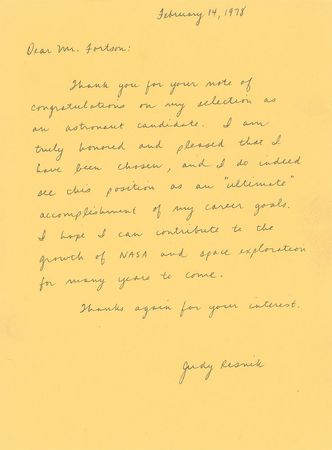 February 14, 1978
Dear Mr. Fortson:
Thank you for your note of
congratulations on my selection as
an astronaut candidate. I am
truly honored and pleased that I
have been chosen, and I do indeed
see this position as an "ultimate"
accomplishment of my career goals.
I hope I can contribute to the
growth of NASA and space exploration
for many years to come.
Thanks again for your interest.
Judy Resnik